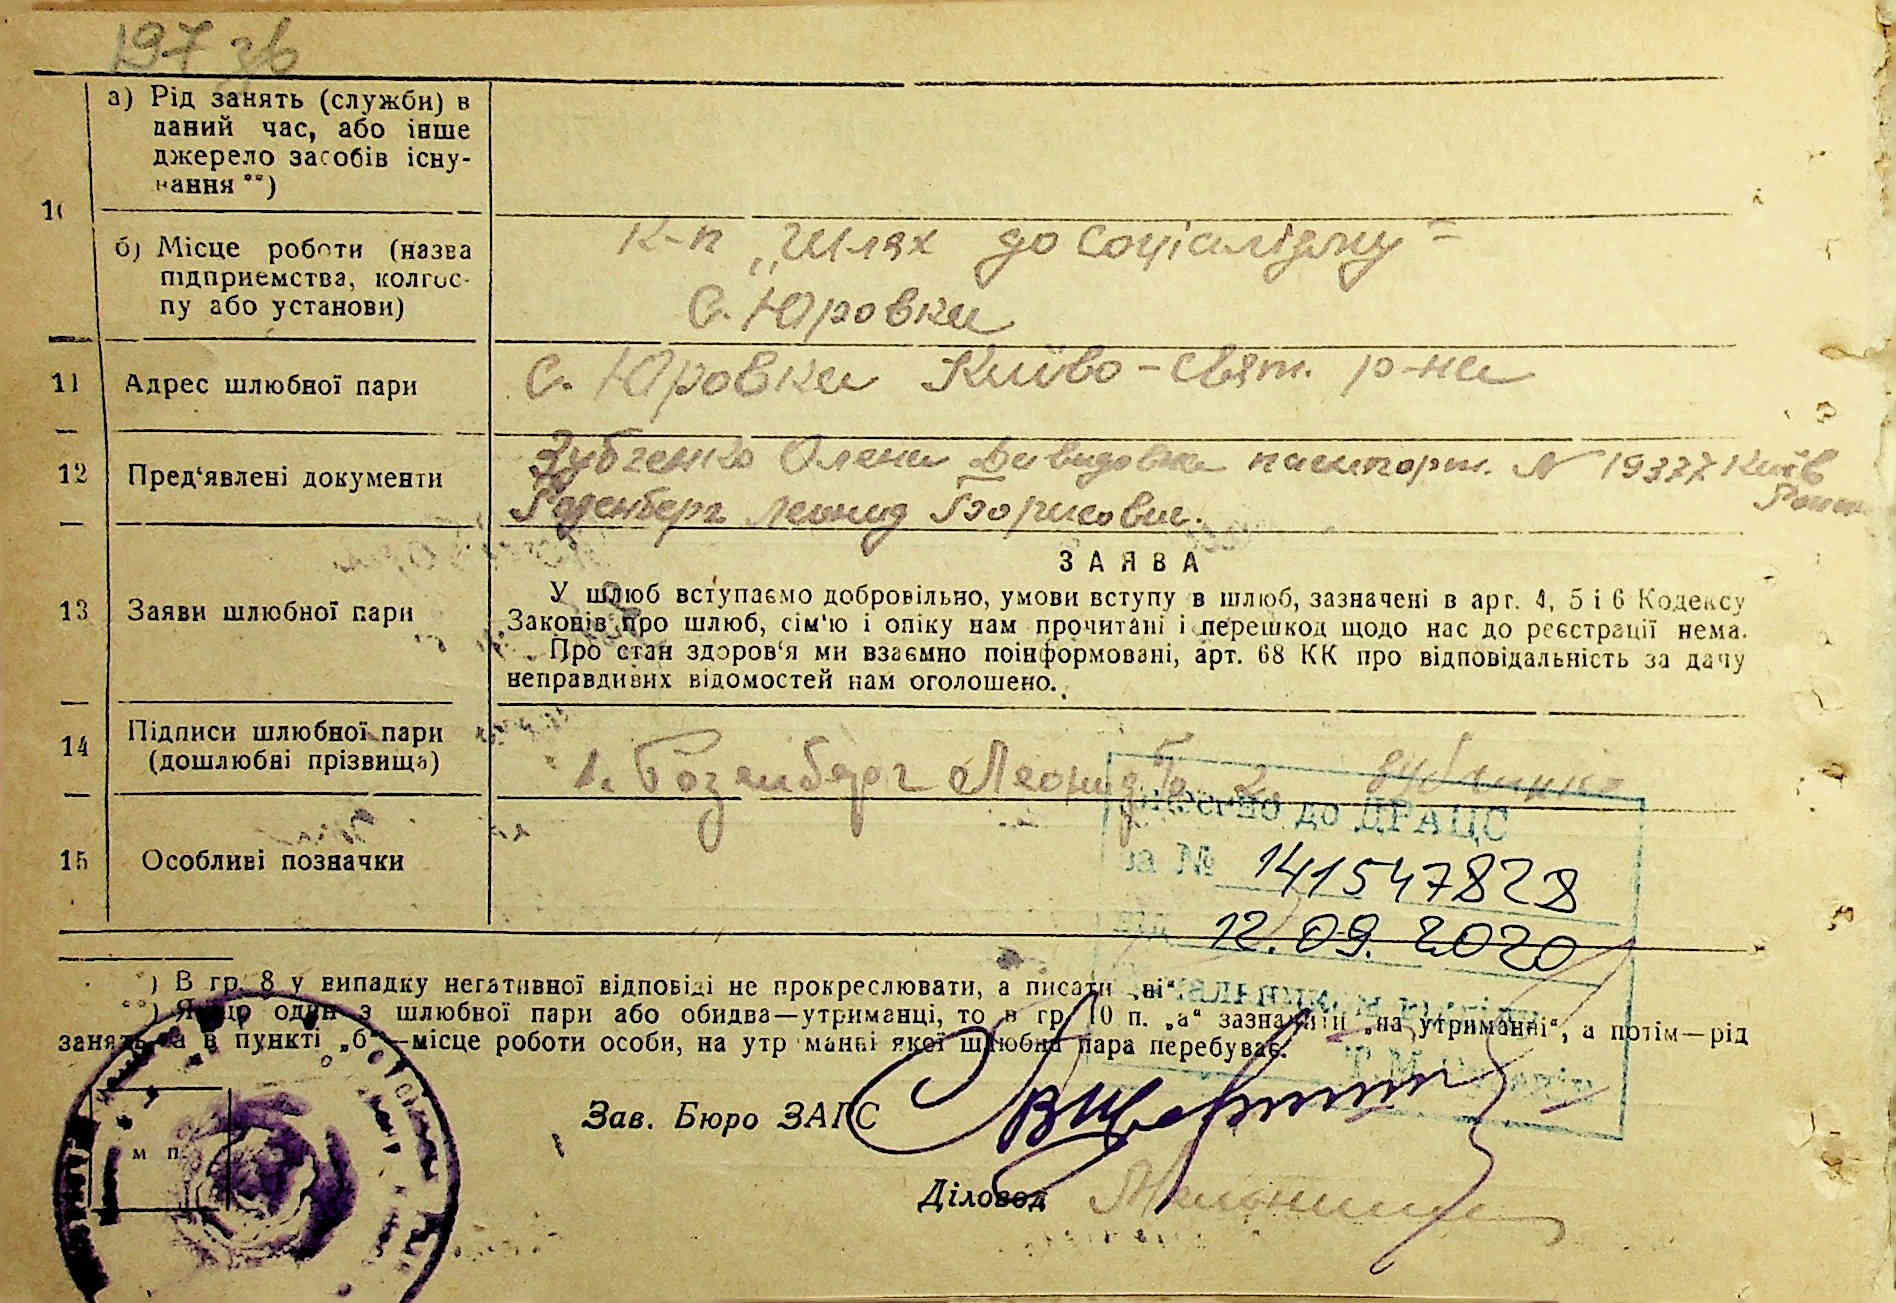 197 зв
10
а) Рід занять (служби) в
даний час, або інше
джерело засобів існу-
вання **)
б) Місце роботи (назва
підприємства, колгос-
пу або установи)
К-п „Шлях до Соціалізму"
С. Юровка
11 Адрес шлюбної пари
С. Юровка Київо-Свят. р-на
12 Пред'явлені документи
Зубченко Олена Давидовна паспорт. N 19377 Київ
Розенберг Леонид Борисович.
ЗАЯВА
13 Заяви шлюбної пари
У шлюб вступаємо добровільно, умови вступу в шлюб, зазначені в арт. 4, 5 і 6 Кодексу
Законів про шлюб, сім'ю і опіку нам прочитані і перешкод щодо нас до реєстрації нема.
Про стан здоров'я ми взаємно поінформовані, арт. 68 КК про відповідальність за дачу
неправдивих відомостей нам оголошено.
14 Підписи шлюбної пари
(дошлюбні прізвища)
1. Розенберг Леонид 2.
внесено до ДРАЦС
15 Особливі позначки
за № 141547828
від 12.09.2020
*) В гр. 8 у випадку негативної відповіді не прокреслювати, а писати „ні".
**) Якщо один з шлюбної пари або обидва—утриманці, то в гр. 10 п. „а" зазначити „на утриманні", а потім—рід
занять, а в пункті „б"—місце роботи особи, на утриманні якої шлюбна пара перебуває.
Зав. Бюро ЗАГС
М П.
Діловод